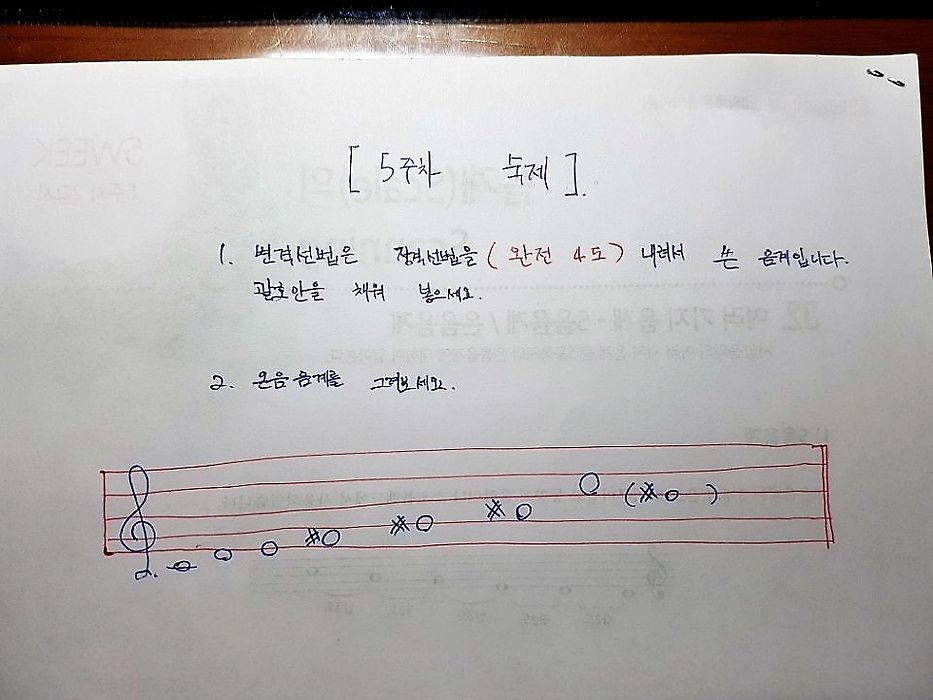 [ 5주차 숙제 ].
1. 변격선법은 정격선법을 ( 완전 4도 ) 내려서 쓴 음계입니다.
괄호안을 채워 넣으세요.
2. 온음 음계를 그려보세요.